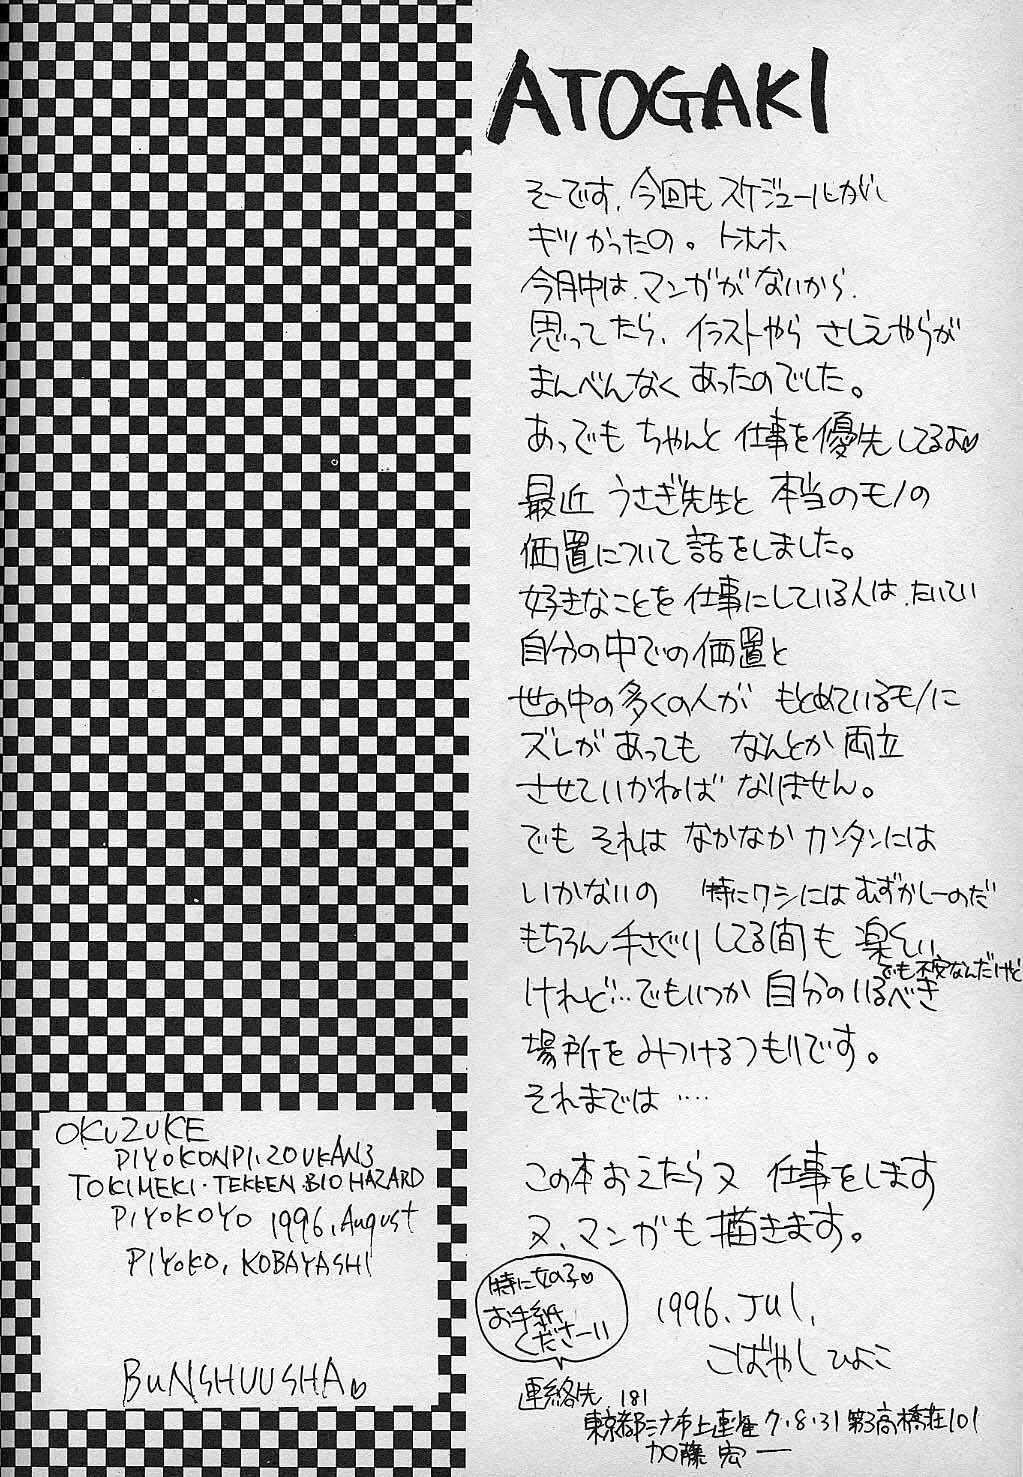 ATOGAKI
そーです、今回もスケジュールがし
キツかったの。トホホ
今月中は、マンガがないから、
思ってたら、イラストやら さしえやらが
まんべんなく あったのでした。
あっでも ちゃんと 仕事を優先してるよ♡
最近 うさぎ先生と 本当のモノの
価置について話をしました。
好きなことを仕事にしている人は、たいてい
自分の中での価置と
世の中の多くの人が もとめているモノに
ズレがあっても なんとか両立
させていかねば なりません。
でも それは なかなか カンタンには
いかないの 特にワシにはむずかしーのだ
もちろん 手さぐりしてる間も 楽しい
でも不安なんだけど
けれど…でもいつか 自分のいるべき
場所を みつけるつもりです。
それまでは ‥‥
この本おえたら又 仕事をします
又、マンガも描きます。
特に女の子♡
お手紙
くださーい
1996. Jul.
こばやし ひよこ
連絡先 181
東京都三ナ市上連雀 7・8・31 第3高橋荘101
加藤 宏一
OKUZUKE
PIYOKONPI. ZOUKAN3
TOKIMEKI・TEKKEN・BIO HAZARD
PIYOKOYO 1996. August
PIYOKO. KOBAYASHI
BUNSHUUSHA♡